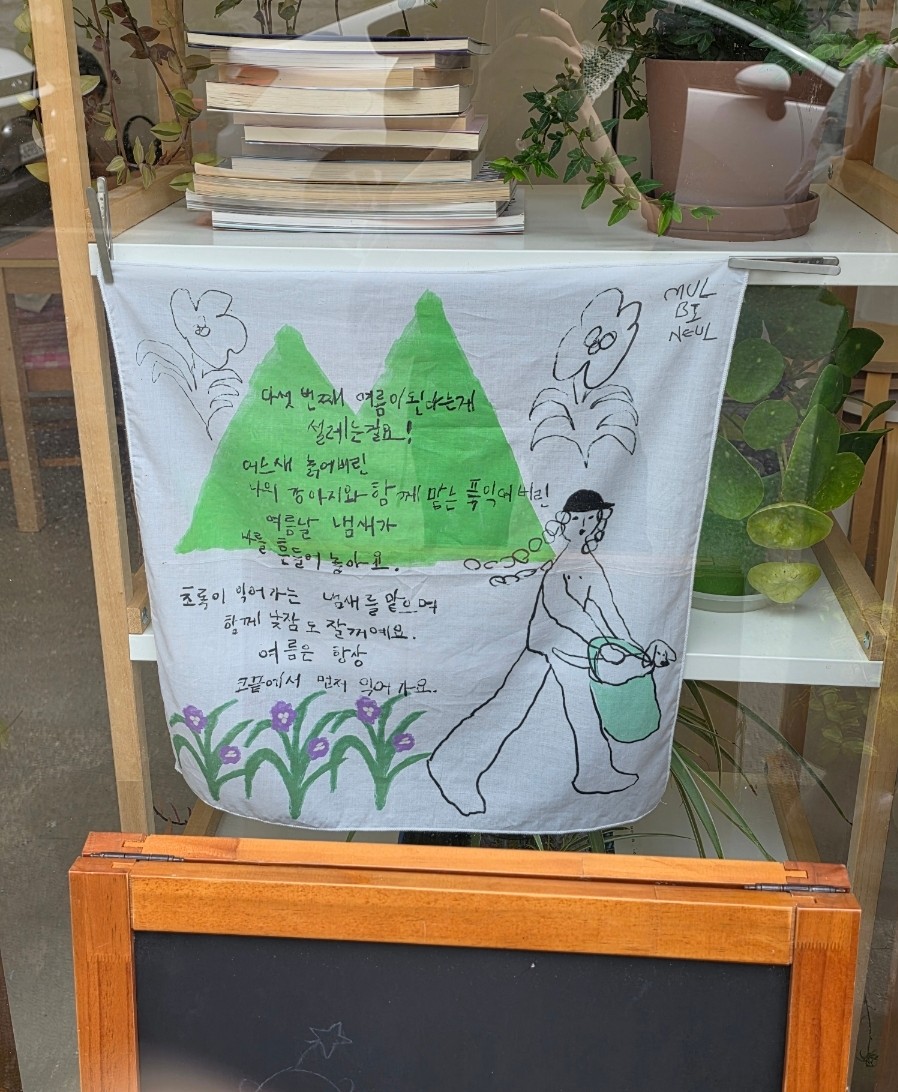 MUL
BI
NEUL
다섯 번째 여름이 된다는게
설레는걸요!
어느새 흙에버린
나의 강아지와 함께 맡는 푹익어버린
여름날 냄새가
나를 흔들어 놓아요.
초록이 익어가는 냄새를 맡으며
함께 낮잠도 잘거예요.
여름은 항상
코끝에서 먼저 익어가요.